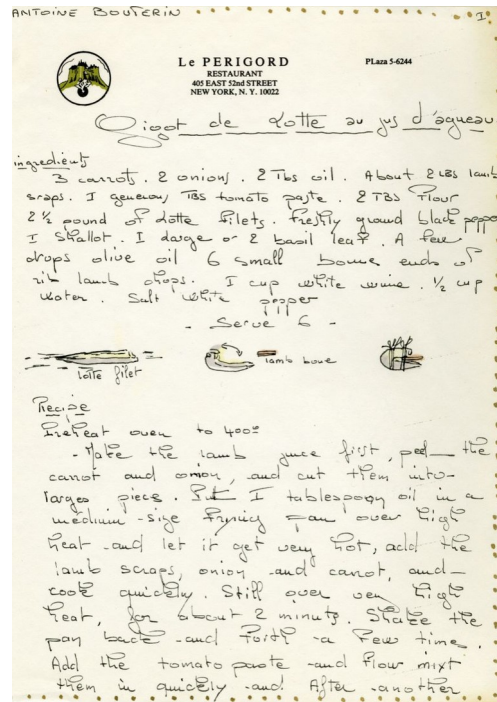 ANTOINE BOUTERIN
I.
Le PERIGORD
PLaza 5-6244
RESTAURANT
405 EAST 52nd STREET
NEW YORK, N. Y. 10022
Gigot de Lotte au jus d'agneau
ingredients
3 carrots. 2 onions. 2 Tbs oil. About 2 LBS lamb
scraps. I generous TBS tomato paste. 2 TBS Flour
2 ½ pound of Lotte filets. freshly ground black pepper
I Shallot. I large or 2 basil leaf. A few
drops olive oil 6 small bones ends of
rib lamb chops. I cup white wine. ½ cup
water. Salt white pepper
- Serve 6 -
lotte filet
lamb bone
Recipe
Preheat oven to 400°
- Make the lamb juice first, peel the
carrot and onion, and cut them into
larges piece. Put I tablespoon oil in a
medium-size frying pan over high
heat and let it get very hot, add the
lamb scraps, onion and carrot, and
cook quickly. Still over very high
heat, for about 2 minuts. Shake the
pan back and forth a few time.
Add the tomato paste and flour mixt
them in quickly and After another